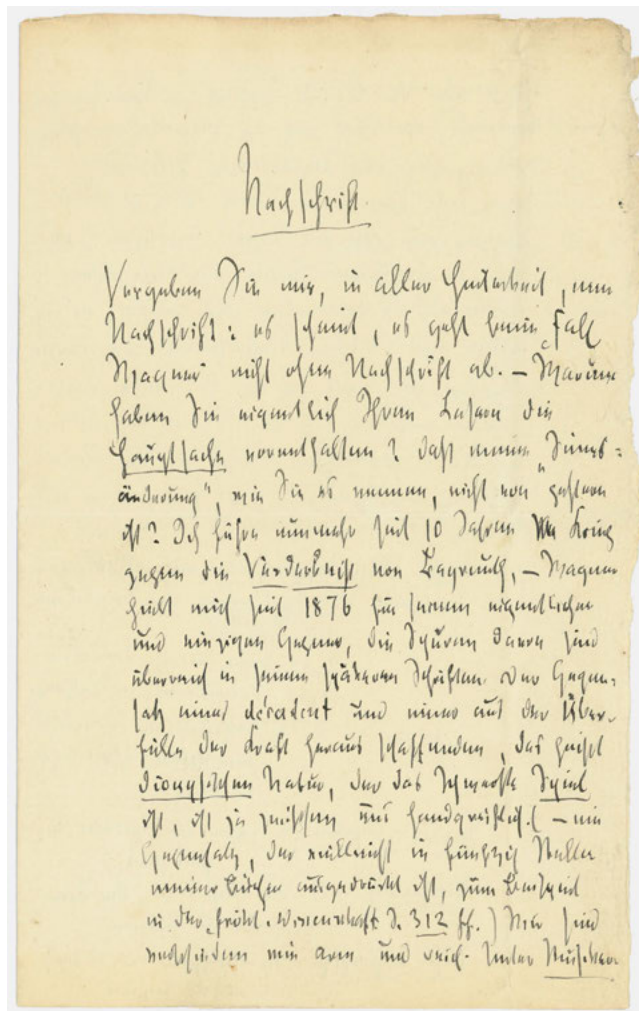 Nachschrift.
Vergeben Sie mir, in aller Heiterkeit, eine
Nachschrift: es scheint, es geht beim „Fall
Wagner“ nicht ohne Nachschrift ab. – Warum
haben Sie eigentlich Ihren Lesern die
Hauptsache vorenthalten? Daß meine „Sinnes=
änderung“, wie Sie es nennen, nicht von gestern
ist? Ich führe nunmehr seit 10 Jahren Krieg
gegen die Verderbniß von Bayreuth, – Wagner
hielt mich seit 1876 für seinen eigentlichen
und einzigen Gegner, die Spuren davon sind
überreich in seinen späteren Schriften. Der Gegen=
satz eines décadent und einer aus der Über=
fülle der Kraft heraus schaffenden, das heißt
dionysischen Natur, der das Schwerste Spiel
ist, ist ja zwischen uns handgreiflich. (– ein
Gegensatz, der vielleicht in fünfzig Stellen
meiner Bücher ausgedrückt ist, zum Beispiel
in der „fröhl. Wissenschaft S. 312 ff.) Wir sind
verschieden wie arm und reich. Unter Musikern